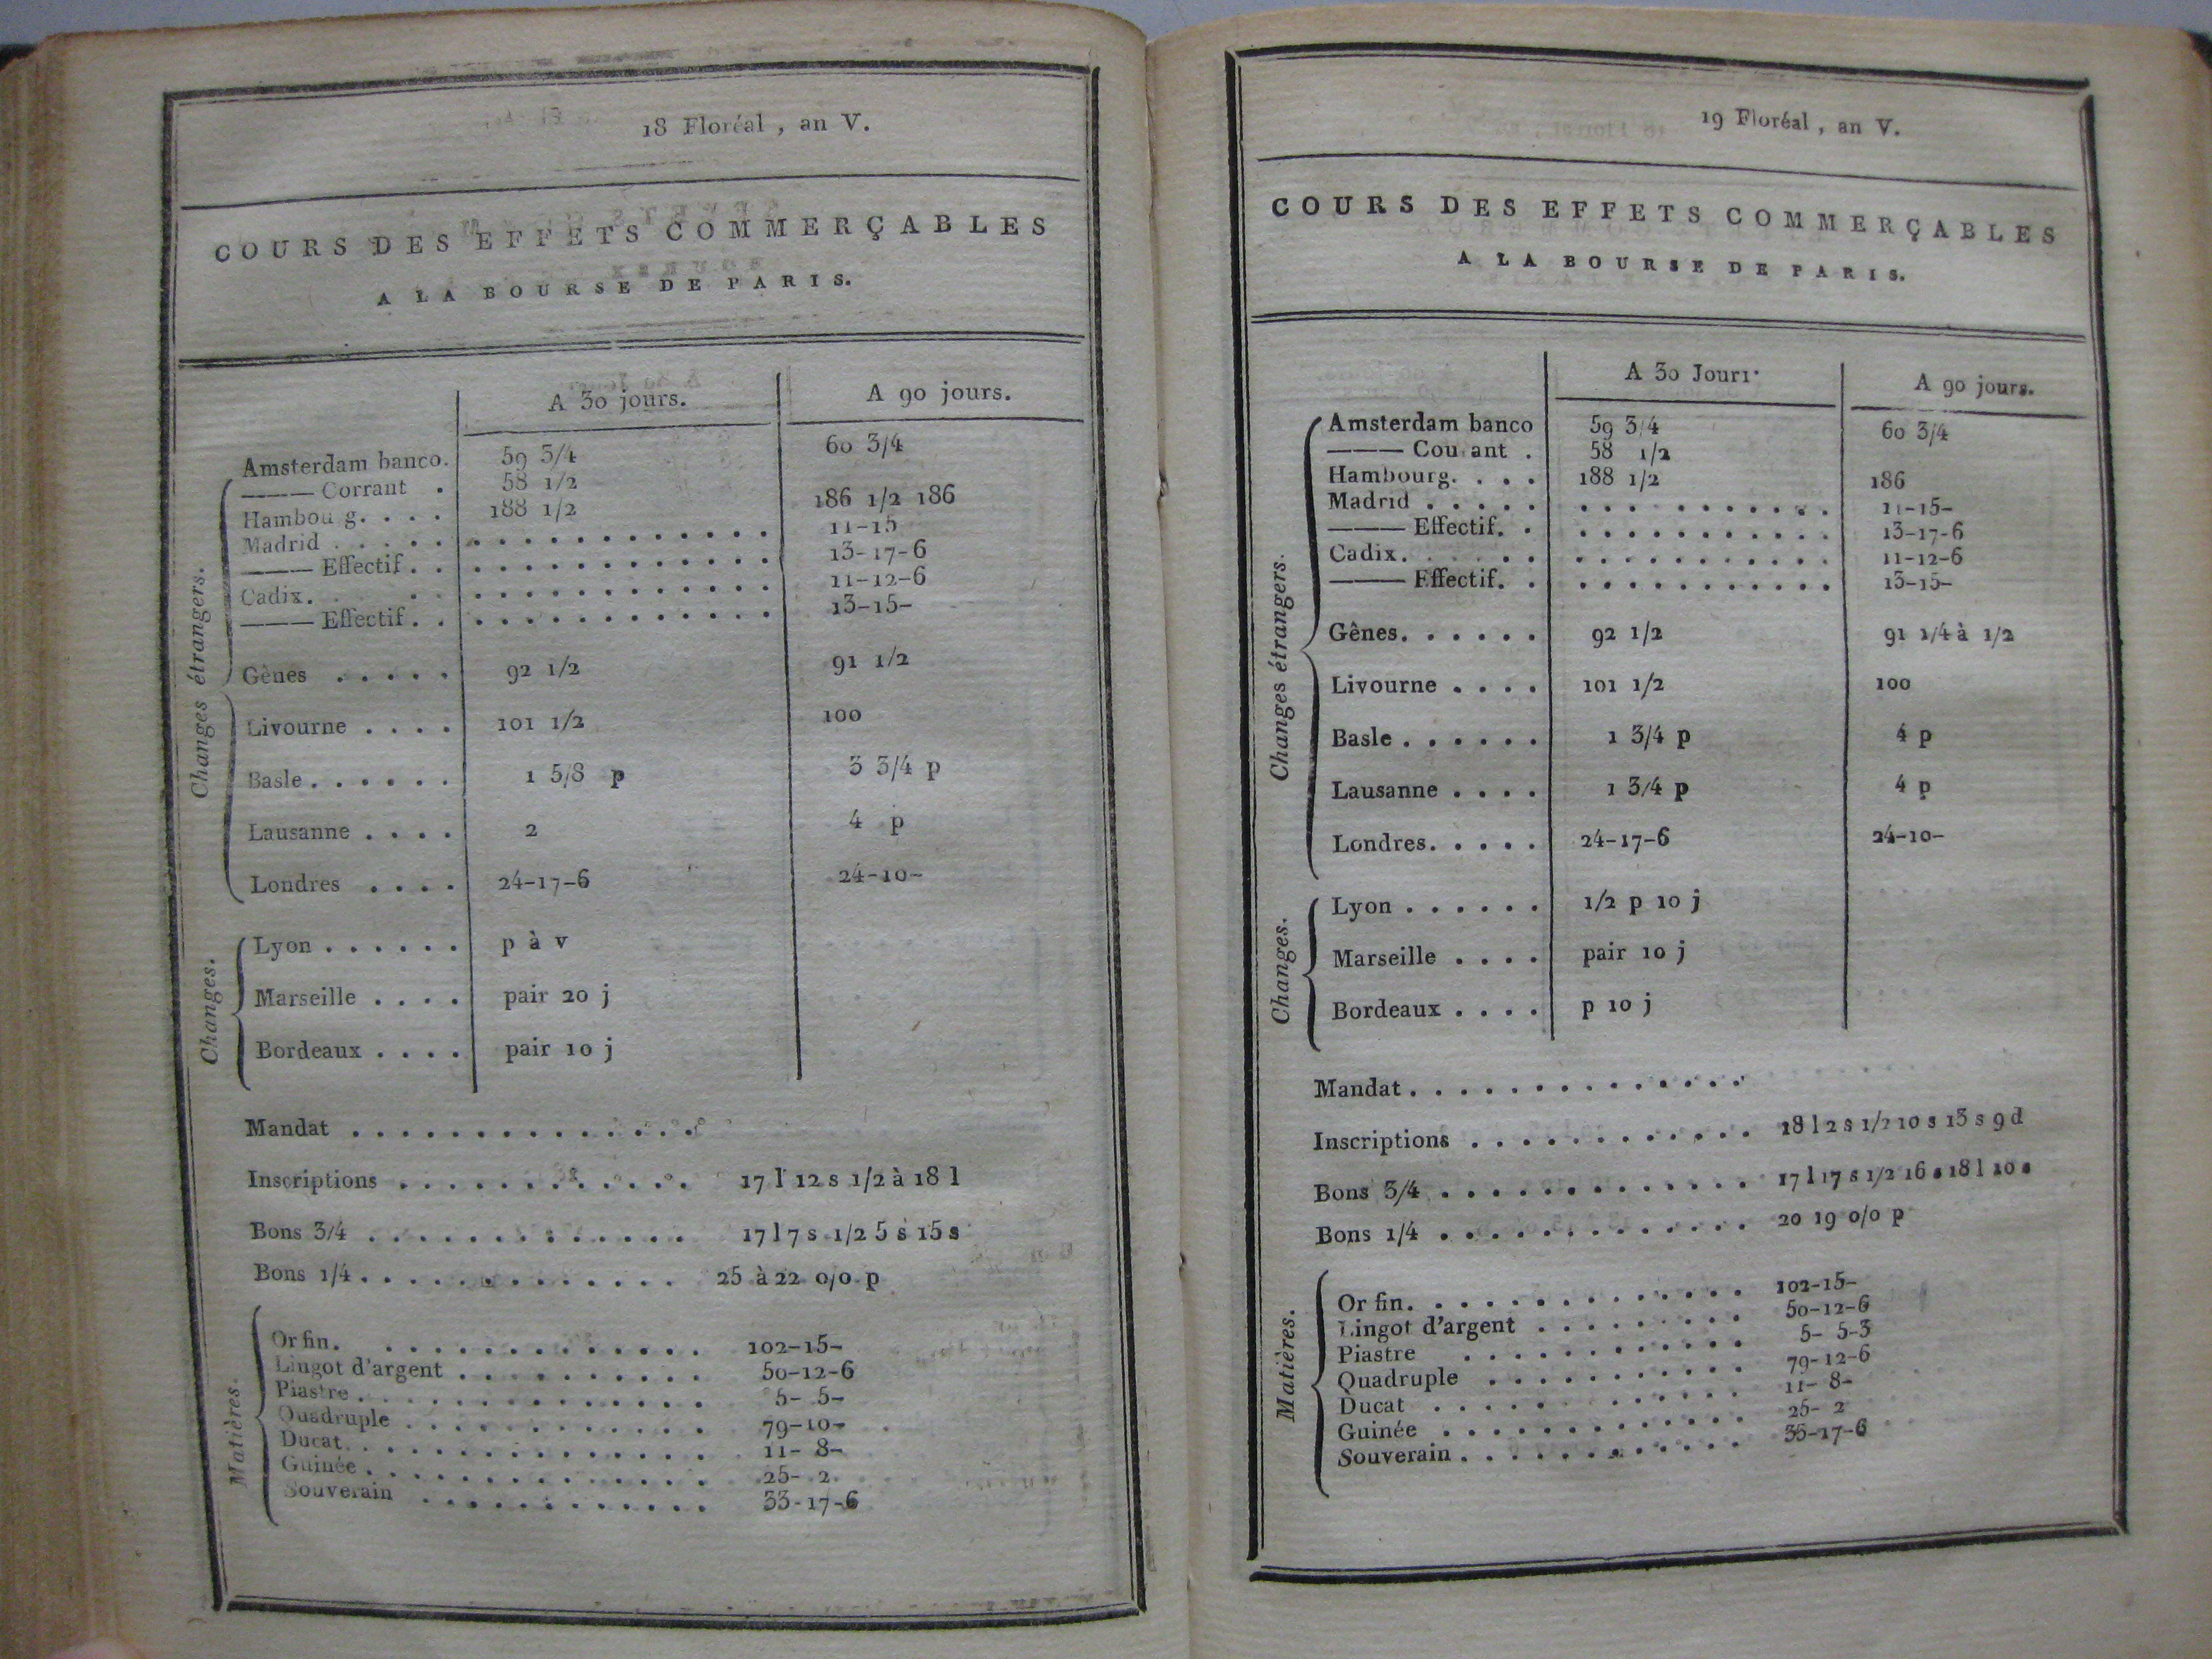 18 Floréal , an V.
COURS DES EFFETS COMMERÇABLES
A LA BOURSE DE PARIS.
A 30 jours. A 90 jours.
Changes étrangers.
Amsterdam banco. 59 3/4 60 3/4
——— Corrant . 58 1/2
Hambou g. . . . 188 1/2 186 1/2 186
Madrid . . . . . . . . . . . . . . . . . 11-15
——— Effectif . . . . . . . . . . . . . . 13-17-6
Cadix. . . . . . . . . . . . . . . 11-12-6
——— Effectif . . . . . . . . . . . . . . 13-15-
Gênes . . . . . 92 1/2 91 1/2
Livourne . . . . 101 1/2 100
Basle . . . . . . 1 5/8 p 3 3/4 p
Lausanne . . . . 2 4 p
Londres . . . . 24-17-6 24-10-
Changes.
Lyon . . . . . . p à v
Marseille . . . . pair 20 j
Bordeaux . . . . pair 10 j
Mandat . . . . . . . . . . . . . .
Inscriptions . . . . . . . . . . . . 17 l 12 s 1/2 à 18 l
Bons 3/4 . . . . . . . . . . . . . 17 l 7 s 1/2 5 s 15 s
Bons 1/4 . . . . . . . . . . . . . 25 à 22 o/o p
Matières.
Or fin. . . . . . . . . . . . . . 102-15-
Lingot d'argent . . . . . . . . . . 50-12-6
Piastre . . . . . . . . . . . . . . 5- 5-
Quadruple . . . . . . . . . . . . 79-10-
Ducat. . . . . . . . . . . . . . . 11- 8-
Guinée . . . . . . . . . . . . . . 25- 2
Souverain . . . . . . . . . . . . 33-17-6
19 Floréal , an V.
COURS DES EFFETS COMMERÇABLES
A LA BOURSE DE PARIS.
A 30 Jour A 90 jours.
Changes étrangers.
Amsterdam banco 59 3/4 60 3/4
——— Cou ant . 58 1/2
Hambourg. . . . 188 1/2 186
Madrid . . . . . . . . . . . . . . . . 11-15-
——— Effectif. . . . . . . . . . . . . 13-17-6
Cadix. . . . . . . . . . . . . . 11-12-6
——— Effectif. . . . . . . . . . . . . 13-15-
Gênes. . . . . . 92 1/2 91 1/4 à 1/2
Livourne . . . . 101 1/2 100
Basle . . . . . . 1 3/4 p 4 p
Lausanne . . . . 1 3/4 p 4 p
Londres. . . . . 24-17-6 24-10-
Changes.
Lyon . . . . . . 1/2 p 10 j
Marseille . . . . pair 10 j
Bordeaux . . . . p 10 j
Mandat . . . . . . . . . . . . . .
Inscriptions . . . . . . . . . . . . 18 l 2 s 1/2 10 s 13 s 9 d
Bons 3/4 . . . . . . . . . . . . . 17 l 17 s 1/2 16 s 18 l 10 s
Bons 1/4 . . . . . . . . . . . . . 20 19 o/o p
Matières.
Or fin. . . . . . . . . . . . . . 102-15-
Lingot d'argent . . . . . . . . . 50-12-6
Piastre . . . . . . . . . . . . 5- 5-3
Quadruple . . . . . . . . . . . 79-12-6
Ducat . . . . . . . . . . . . 11- 8-
Guinée . . . . . . . . . . . . . 25- 2
Souverain . . . . . . . . . . . . 33-17-6